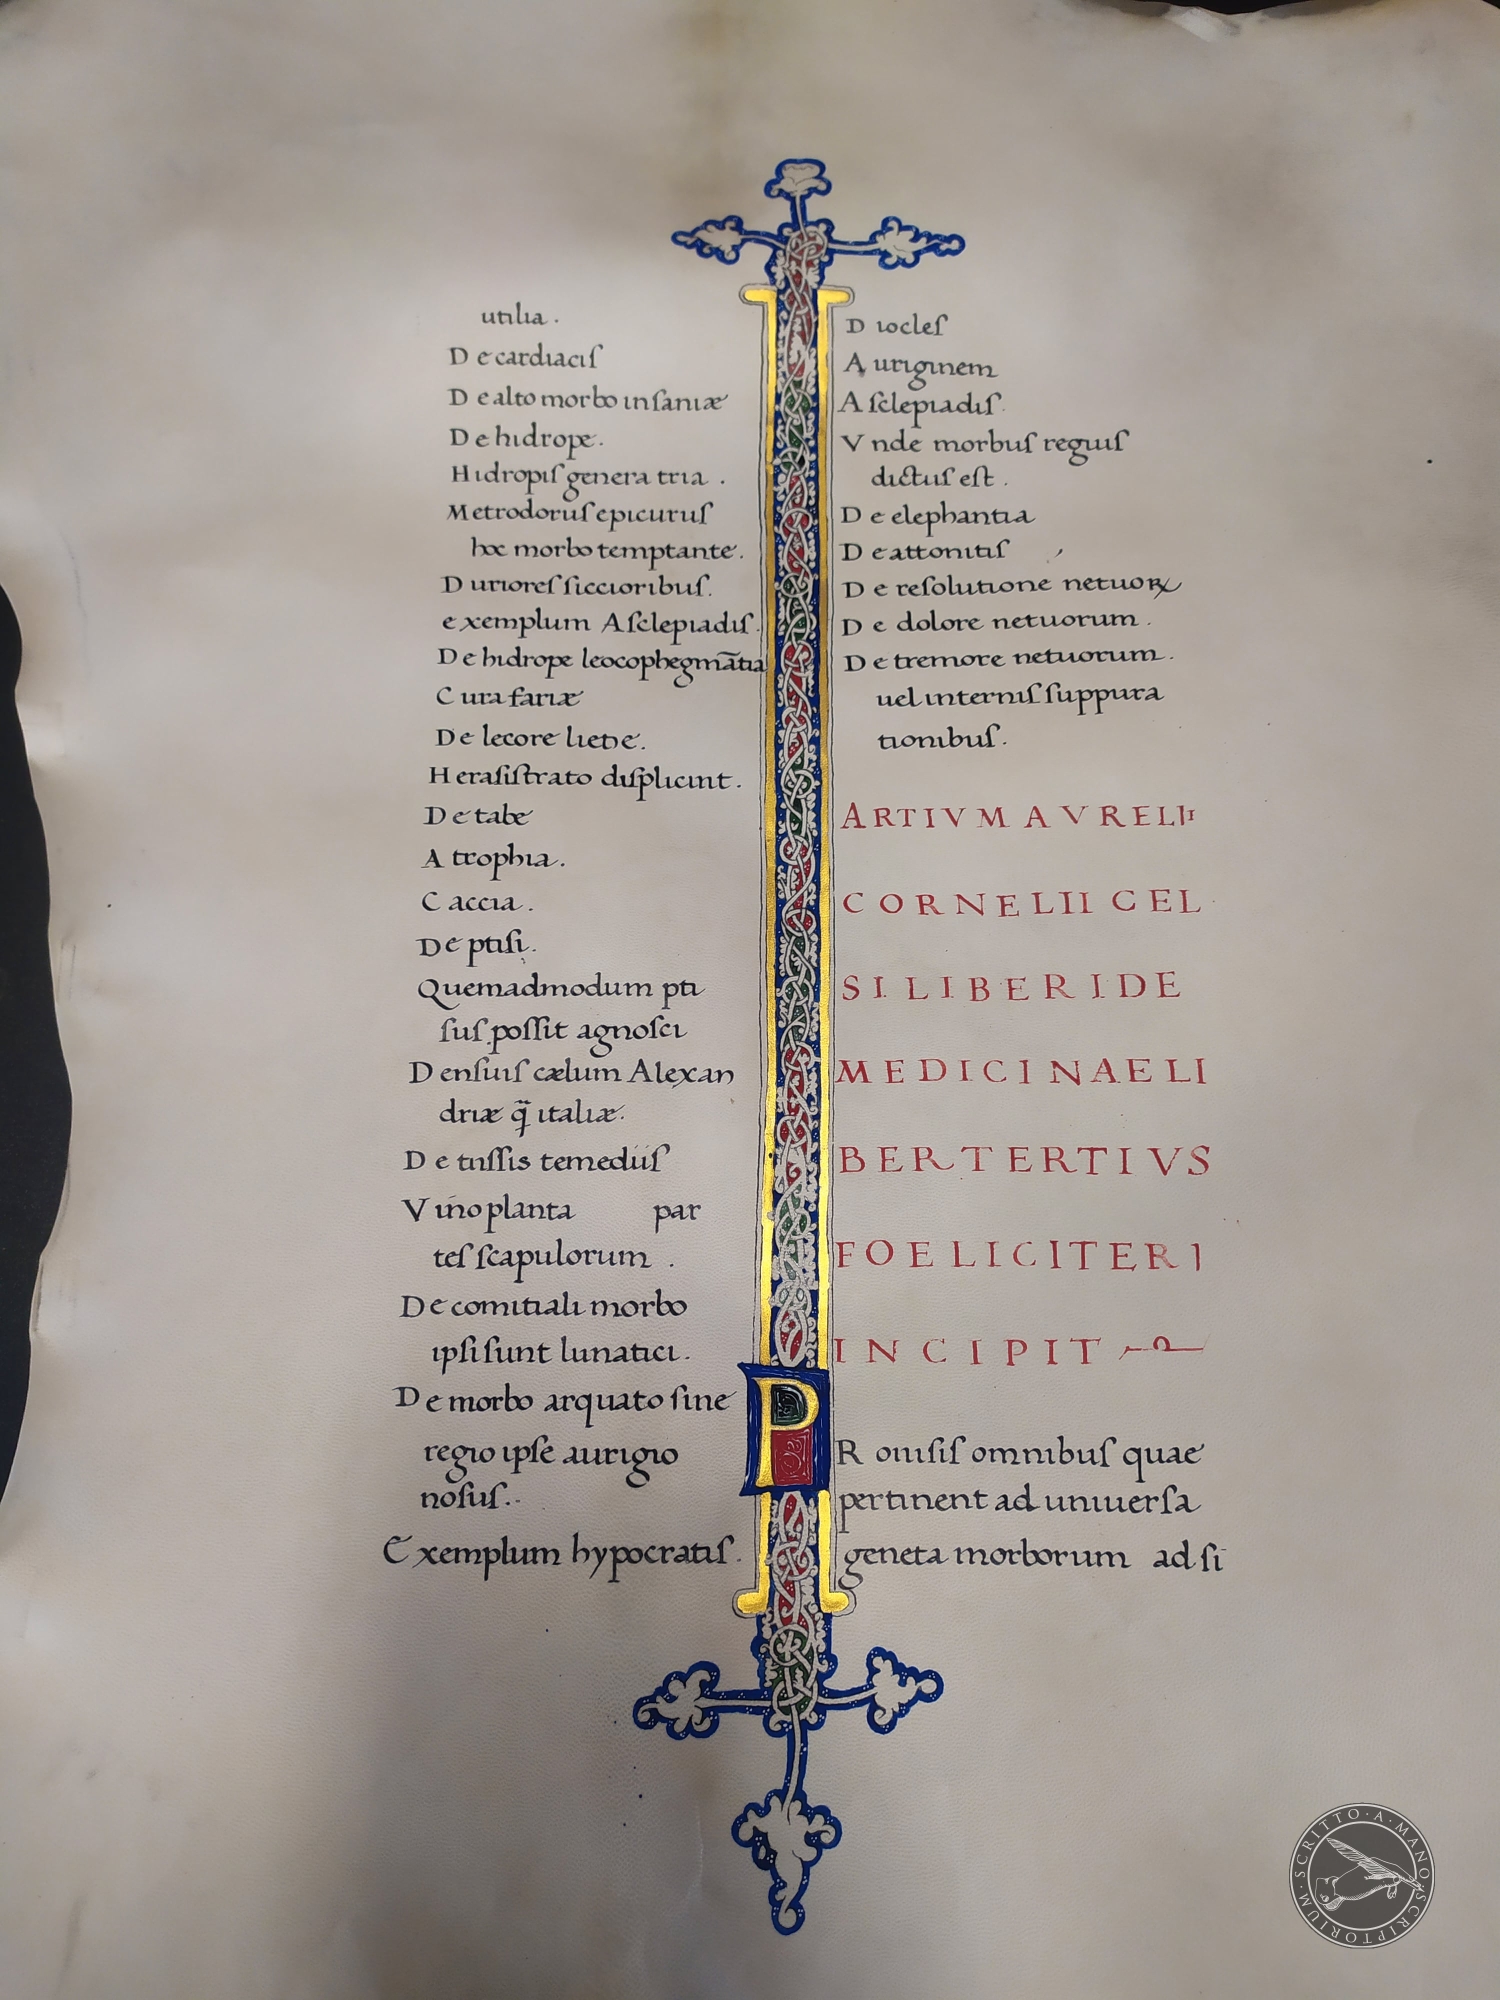 utilia.
De cardiacis
De alto morbo insaniæ
De hidrope.
Hidropis genera tria.
Metrodorus epicurus
hoc morbo temptante.
Duriores siccioribus.
exemplum Asclepiadis.
De hidrope leocophegmātia
Cura fariæ
De Iecore liene.
Herasistrato displicint.
De tabe
Atrophia.
Caccia.
De ptisi.
Quemadmodum pti
sus possit agnosci
Densuis cælum Alexan
driæ q̃ italiæ.
De tussis temediis
Vino planta par
tes scapulorum.
De comitiali morbo
ipsi sunt lunatici.
De morbo arquato sine
regio ipse aurigio
nosus..
Exemplum hypocratis.
Diocles
Auriginem
Asclepiadis.
Vnde morbus reguis
dictus est.
De elephantia
De attonitis
De resolutione netuoꝝ
De dolore netuorum.
De tremore netuorum.
uel internis suppura
tionibus.
ARTIVM AVRELII
CORNELII CEL
SI LIBERI DE
MEDICINAE LI
BER TERTIVS
FOELICITER I
INCIPIT
PRouisis omnibus quae
pertinent ad uniuersa
geneta morborum ad si
SCRITTO·A·MANO·SCRIPTORIUM·